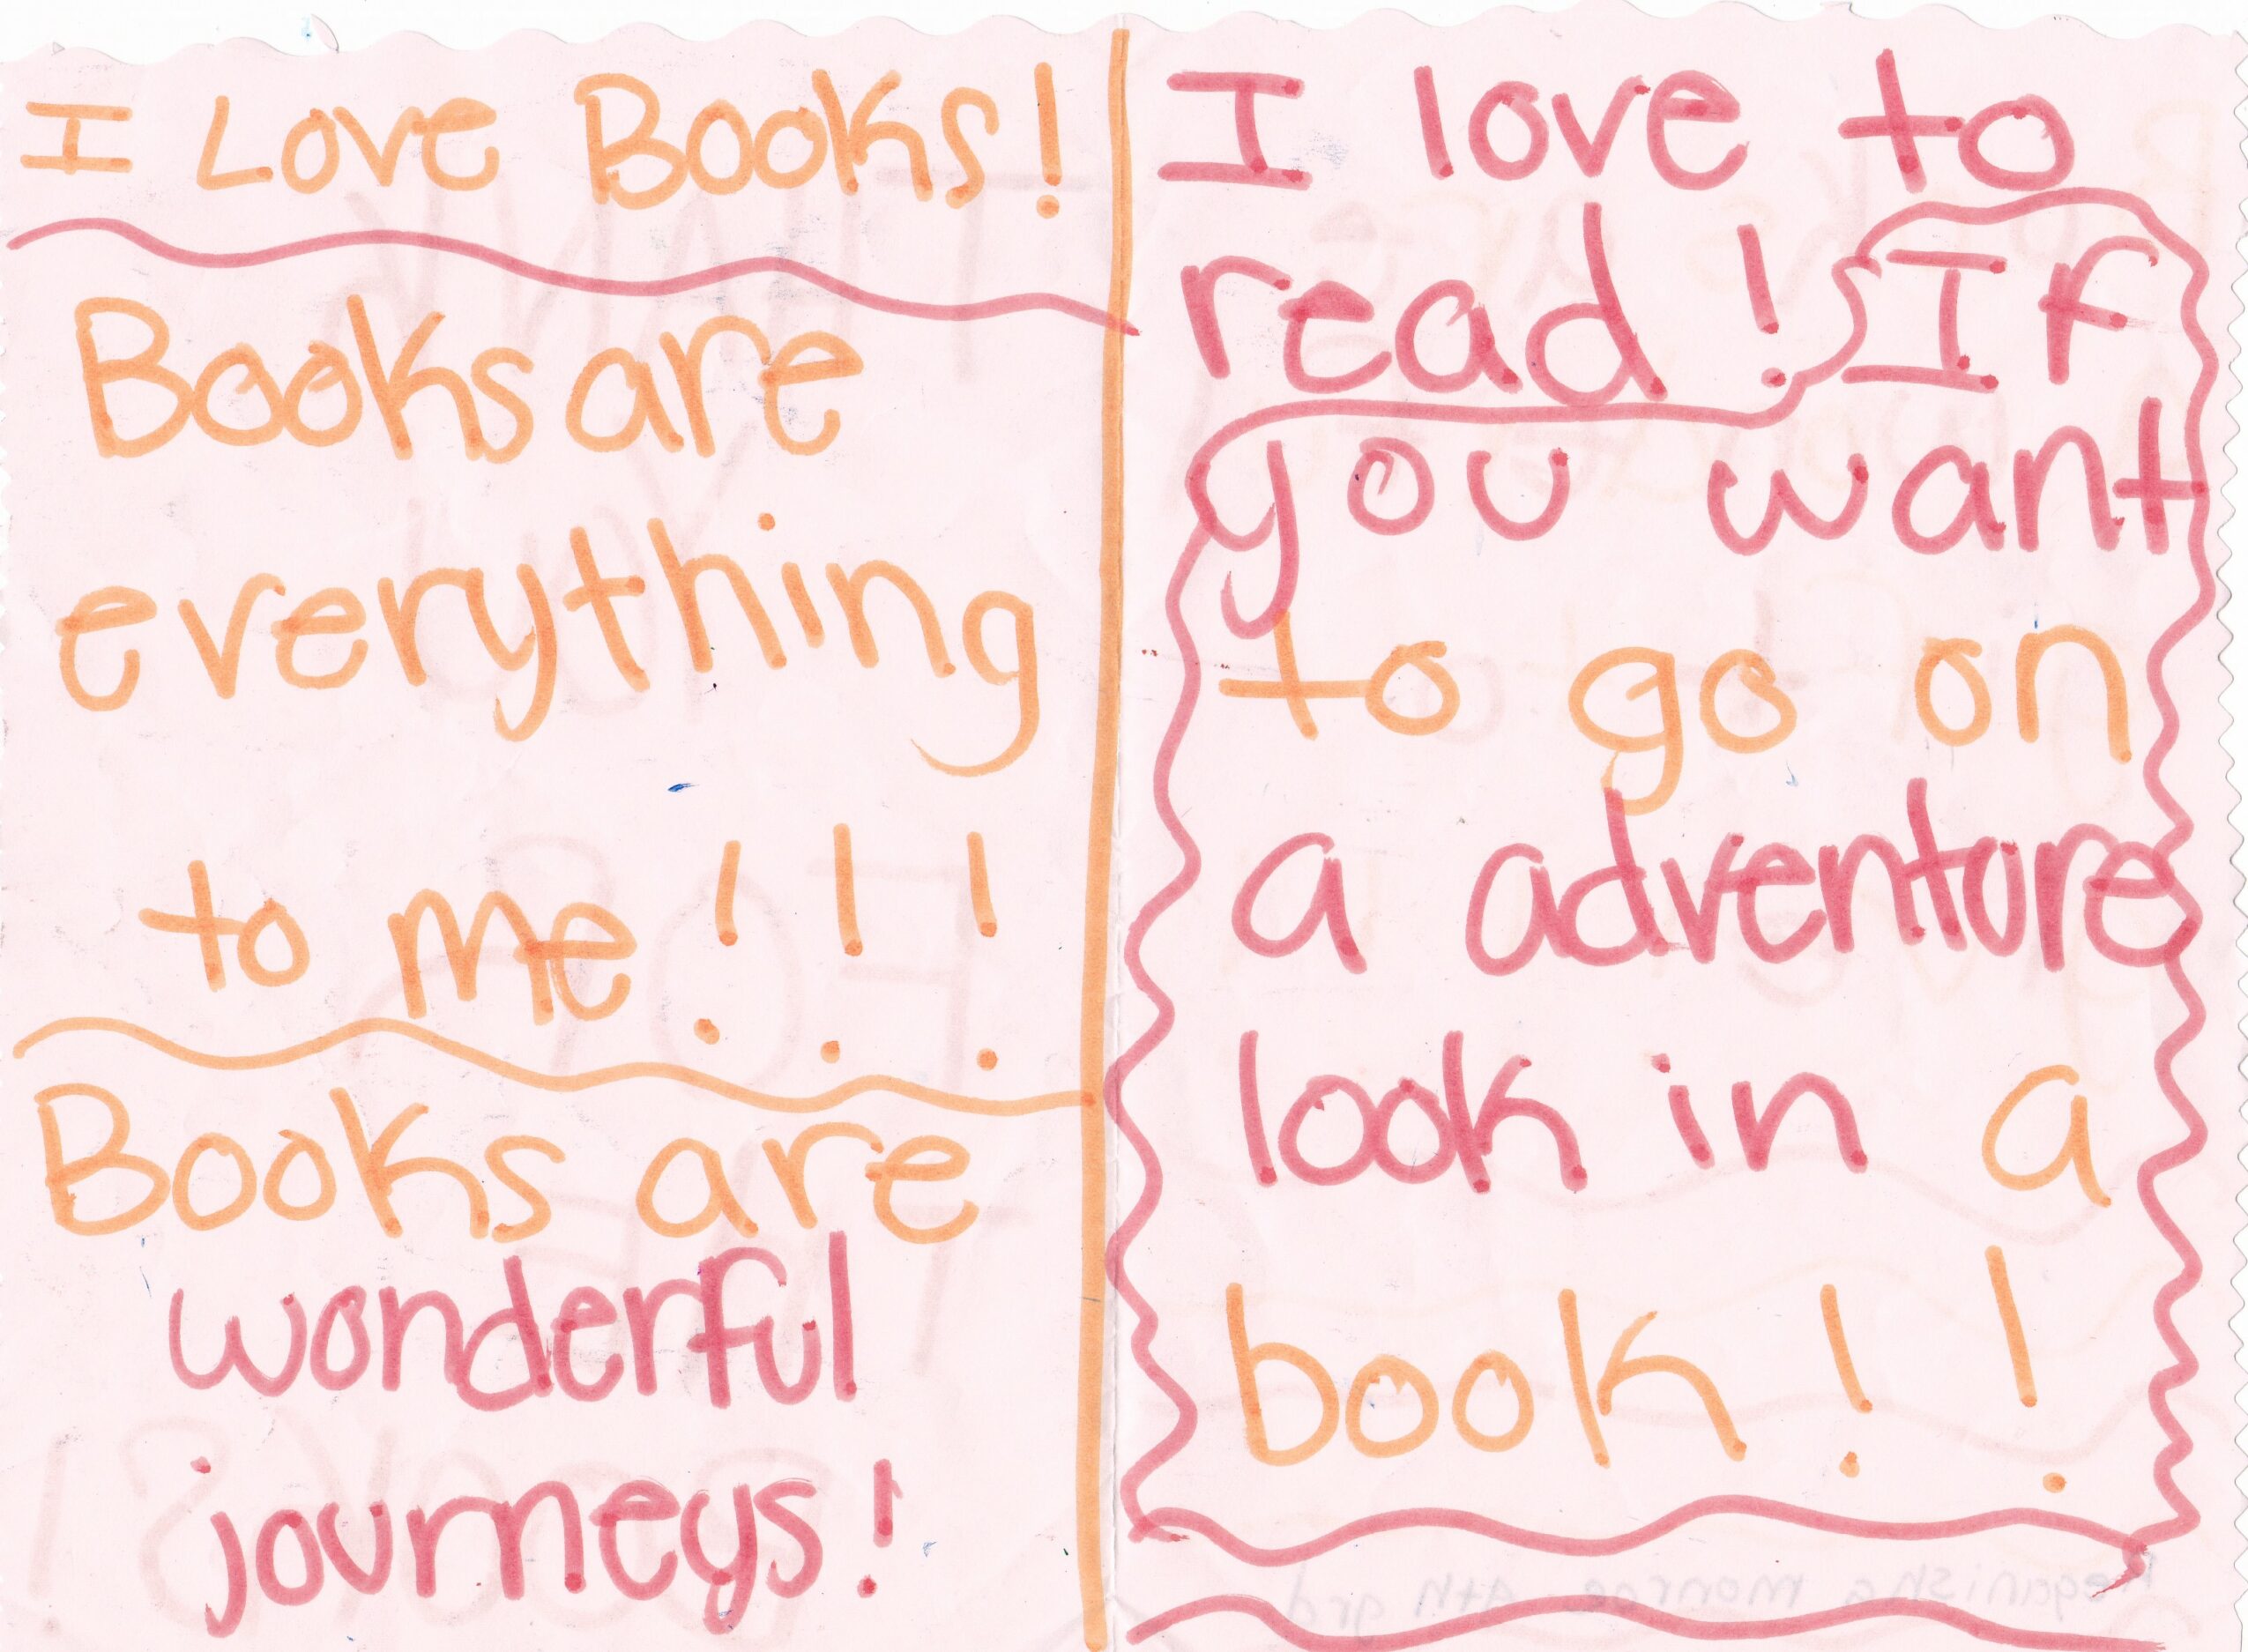 I Love Books!
Books are
everything
to me!!!
Books are
wonderful
journeys!
I love to
read! If
you want
to go on
a adventure
look in a
book!!